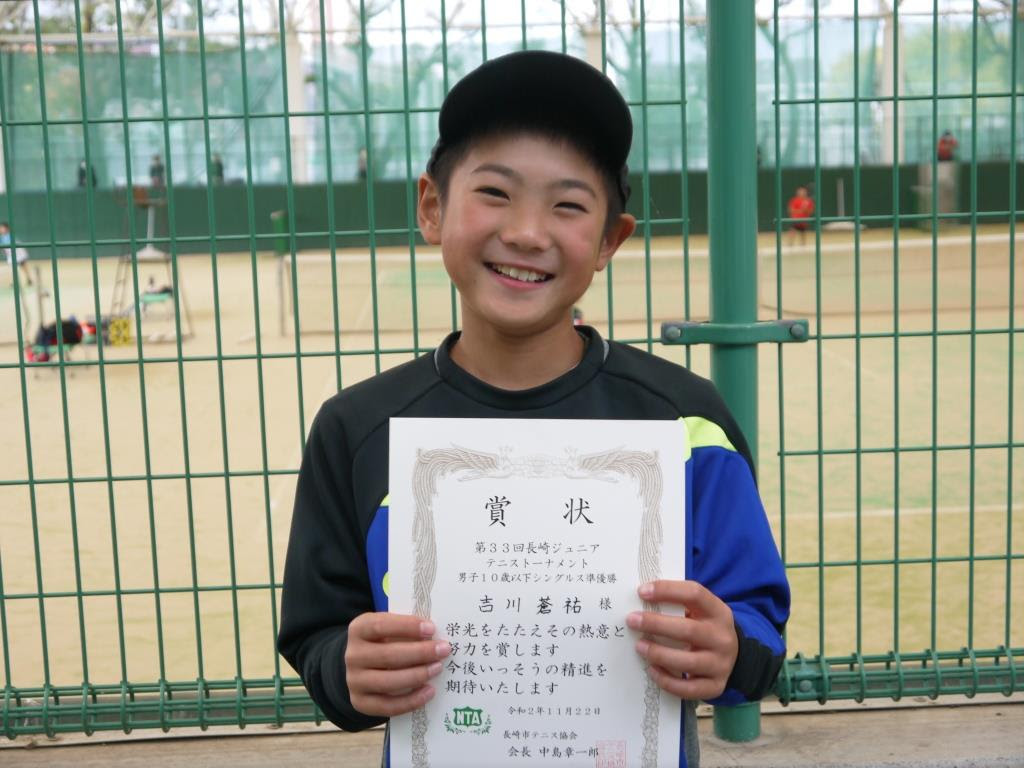 賞 状
第33回長崎ジュニア
テニストーナメント
男子10歳以下シングルス準優勝
吉川 蒼祐 様
栄光をたたえその熱意と
努力を賞します
今後いっそうの精進を
期待いたします
NTA
令和2年11月22日
長崎市テニス協会
会長 中島章一郎